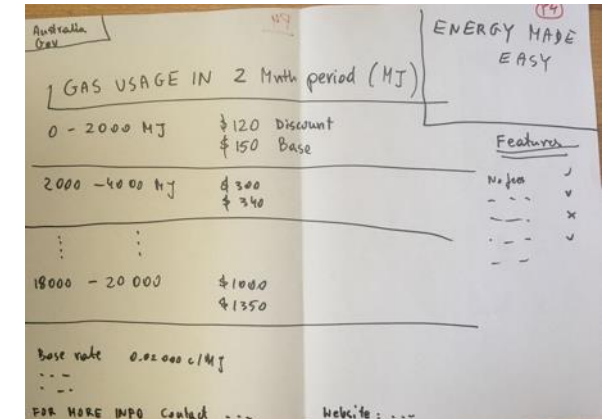 Australia
Gov
P4
ENERGY MADE
EASY
GAS USAGE IN 2 Mnth period (MJ)
0 - 2000 MJ $120 Discount
$150 Base
2000 - 4000 MJ $300
$340
18000 - 20 000 $1000
$1350
Features
No fees
Base rate 0.02000 c/MJ
FOR MORE INFO Contact ---- Website: ----